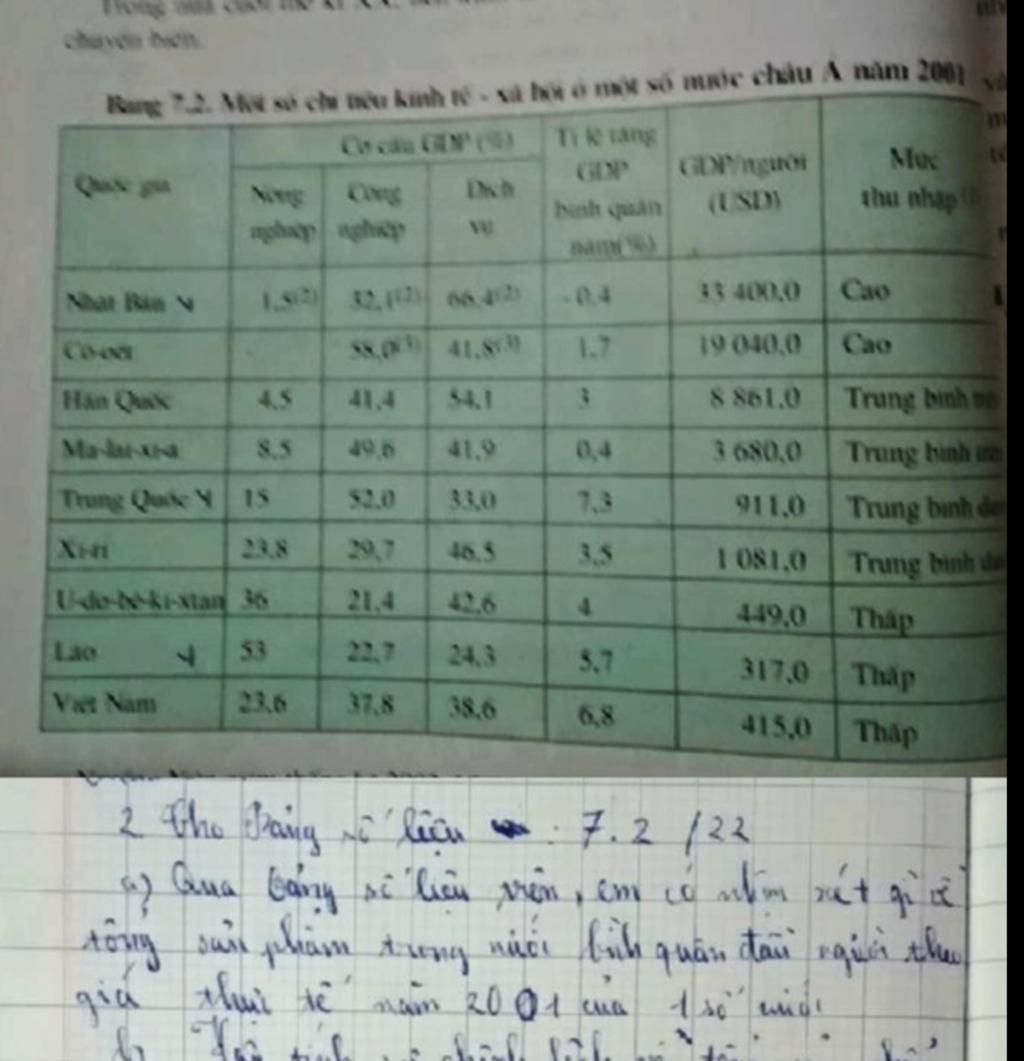 chuyển biến.
Bảng 7.2. Một số chỉ tiêu kinh tế - xã hội ở một số nước châu Á năm 2001
Quốc gia
Cơ cấu GDP (%)
Nông nghiệp
Công nghiệp
Dịch vụ
Tỉ lệ tăng GDP bình quân năm(%)
GDP/người (USD)
Mức thu nhập
Nhật Bản 1,5(2) 32,1(2) 66,4(2) -0,4 33 400,0 Cao
Cô-oét - 58,0(3) 41,8(3) 1,7 19 040,0 Cao
Hàn Quốc 4,5 41,4 54,1 3 8 861,0 Trung bình
Ma-lai-xi-a 8,5 49,6 41,9 0,4 3 680,0 Trung bình
Trung Quốc 15 52,0 33,0 7,3 911,0 Trung bình
Xi-ri 23,8 29,7 46,5 3,5 1 081,0 Trung bình
U-dơ-bê-ki-xtan 36 21,4 42,6 4 449,0 Thấp
Lào 53 22,7 24,3 5,7 317,0 Thấp
Việt Nam 23,6 37,8 38,6 6,8 415,0 Thấp
2 Cho Bảng số liệu : 7.2 /22
a) Qua bảng số liệu trên, em có nhận xét gì về
tổng sản phẩm trong nước bình quân đầu người theo
giá thực tế năm 2001 của 1 số nước